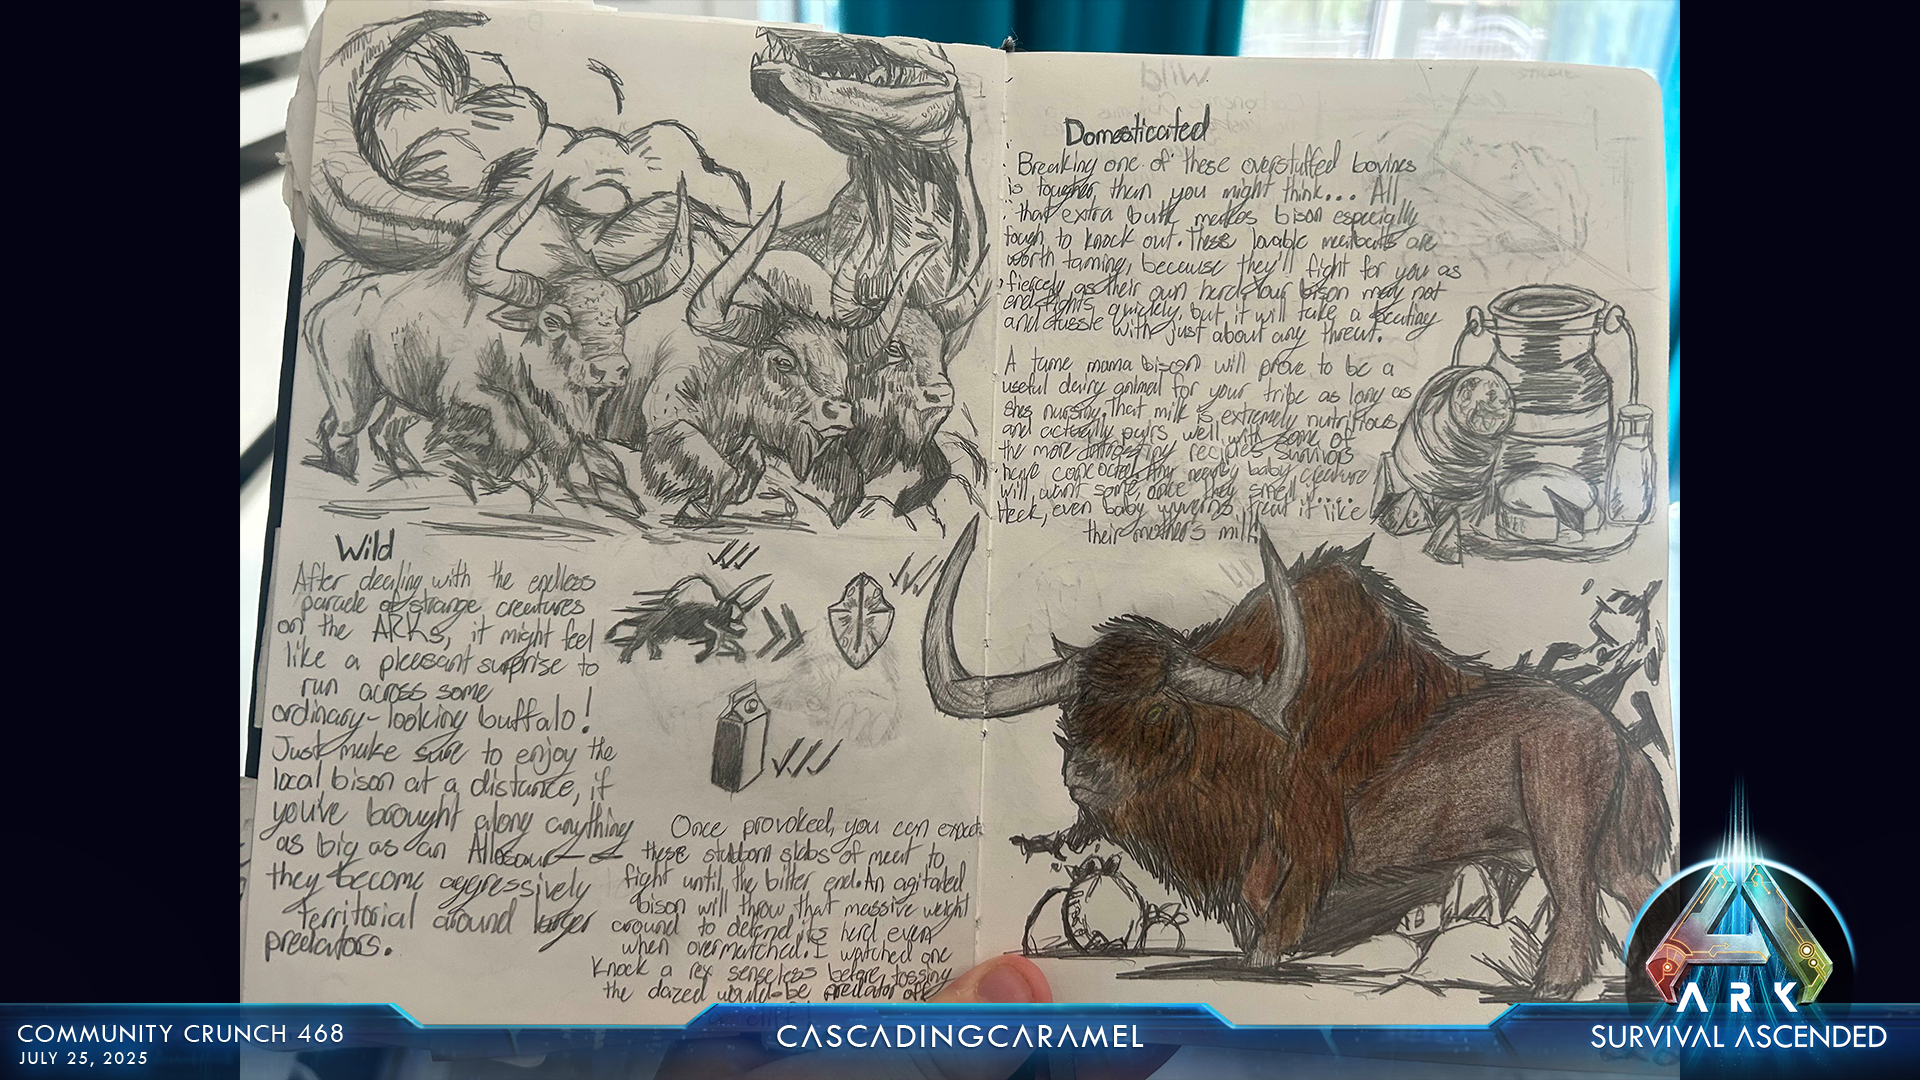 Wild
After dealing with the endless
parade of strange creatures
on the ARKs, it might feel
like a pleasant surprise to
run across some
ordinary-looking buffalo!
Just make sure to enjoy the
local bison at a distance, if
you've brought along anything
as big as an Allosaur--
they become aggressively
territorial around larger
predators.
Once provoked, you can expect
these stubborn slabs of meat to
fight until the bitter end. An agitated
bison will throw that massive weight
around to defend its herd even
when overmatched. I watched one
knock a rex senseless before tossing
the dazed would-be predator off
cliff!
Domesticated
Breaking one of these overstuffed bovines
is tougher than you might think... All
that extra bulk makes bison especially
tough to knock out. These lovable meatballs are
worth taming, because they'll fight for you as
fiercely as their own herd. Your bison may not
end fights quickly, but it will take a beating
and tussle with just about any threat.
A tame mama bison will prove to be a
useful dairy animal for your tribe as long as
shes nursing. That milk is extremely nutritious,
and actually pairs well with some of
the more interesting recipies survivors
have concocted. Any nearby baby creature
will want some, once they smell it....
Heck, even baby wyverns treat it like
their mother's milk!
COMMUNITY CRUNCH 468
JULY 25, 2025
CASCADINGCARAMEL
ARK
SURVIVAL ASCENDED